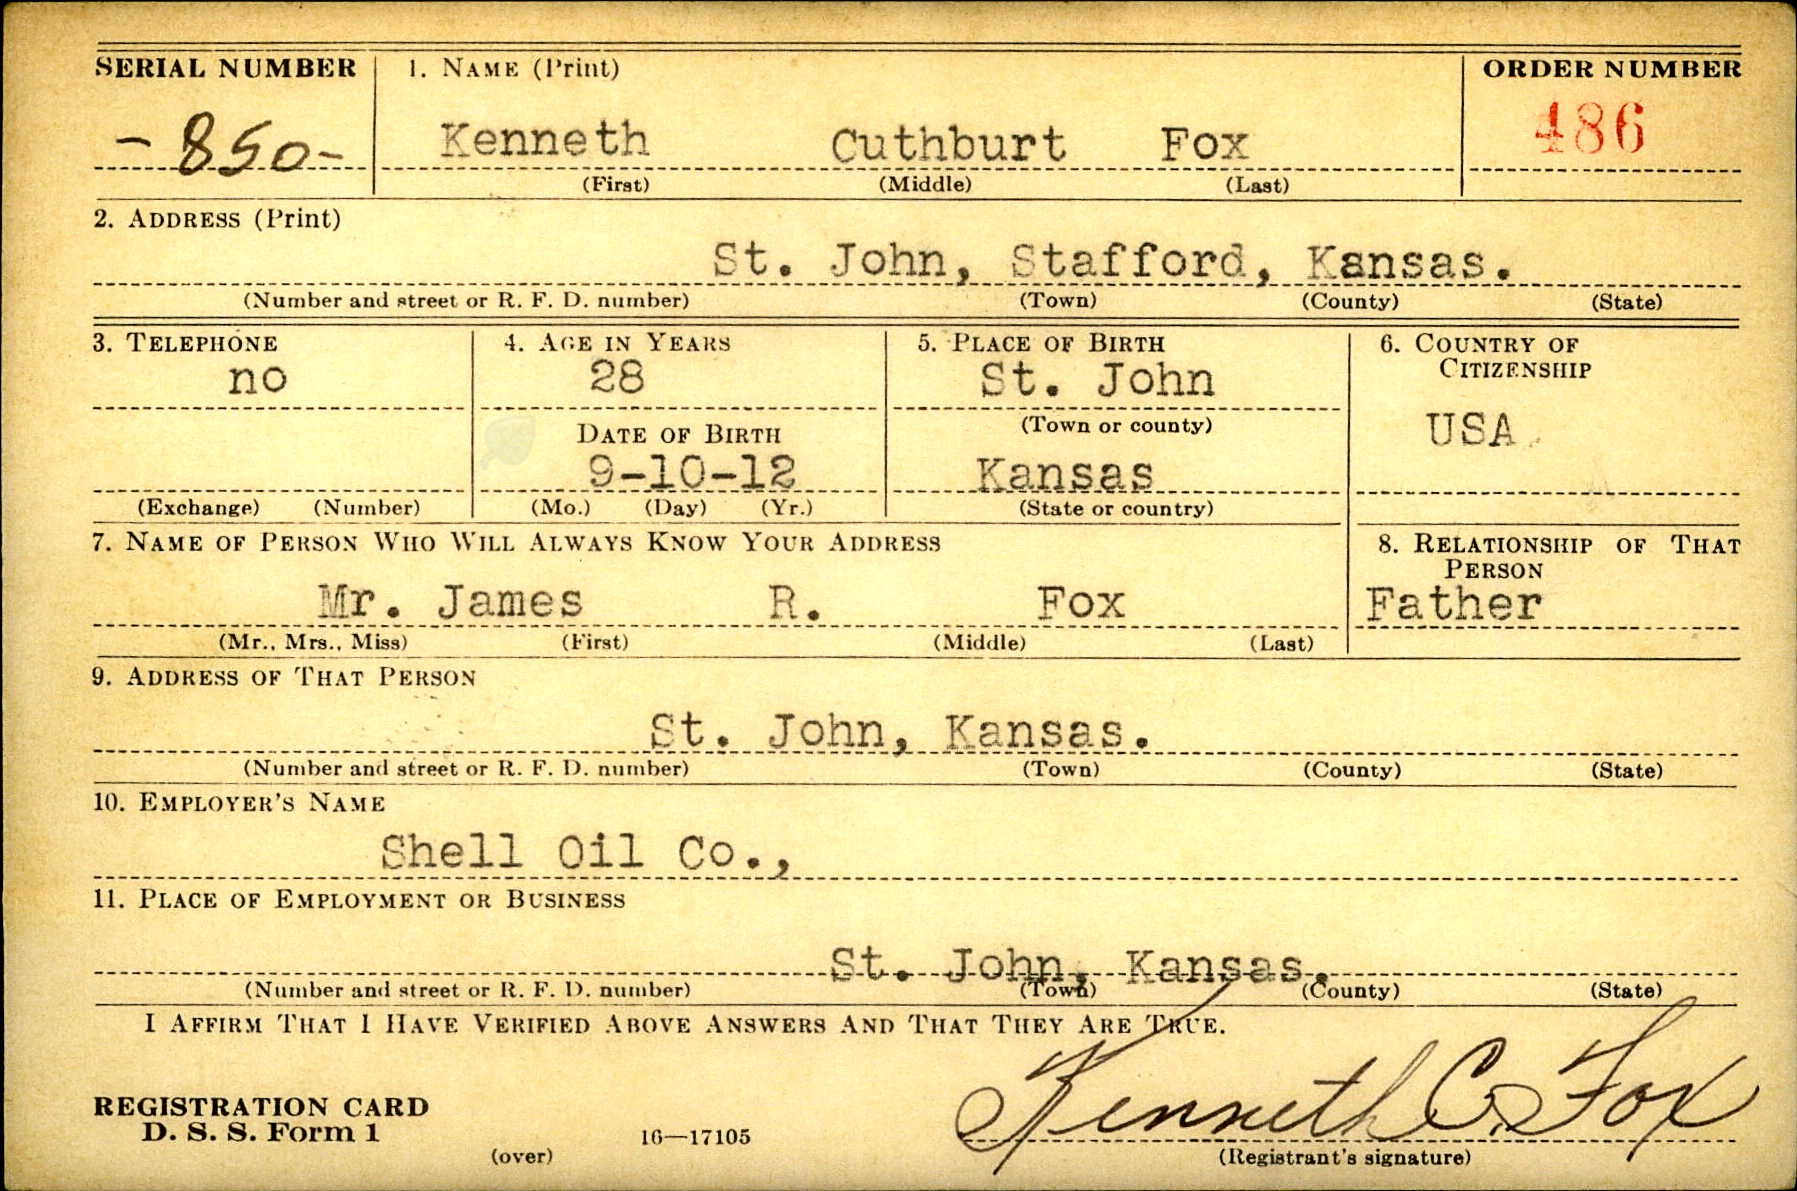 SERIAL NUMBER 1. NAME (Print) ORDER NUMBER
-850- Kenneth Cuthburt Fox 486
(First) (Middle) (Last)
2. ADDRESS (Print)
St. John, Stafford, Kansas.
(Number and street or R. F. D. number) (Town) (County) (State)
3. TELEPHONE 4. AGE IN YEARS 5. PLACE OF BIRTH 6. COUNTRY OF
CITIZENSHIP
no 28 St. John
(Town or county)
USA
DATE OF BIRTH
9-10-12 Kansas
(Exchange) (Number) (Mo.) (Day) (Yr.) (State or country)
7. NAME OF PERSON WHO WILL ALWAYS KNOW YOUR ADDRESS 8. RELATIONSHIP OF THAT
PERSON
Mr. James R. Fox Father
(Mr., Mrs., Miss) (First) (Middle) (Last)
9. ADDRESS OF THAT PERSON
St. John, Kansas.
(Number and street or R. F. D. number) (Town) (County) (State)
10. EMPLOYER'S NAME
Shell Oil Co.,
11. PLACE OF EMPLOYMENT OR BUSINESS
St. John, Kansas.
(Number and street or R. F. D. number) (Town) (County) (State)
I AFFIRM THAT I HAVE VERIFIED ABOVE ANSWERS AND THAT THEY ARE TRUE.
Kenneth C. Fox
REGISTRATION CARD
D. S. S. Form 1 16—17105
(over) (Registrant's signature)